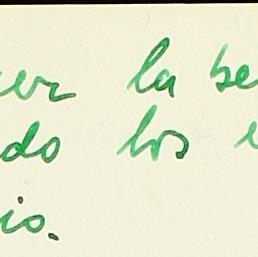 er la be
do los
io.